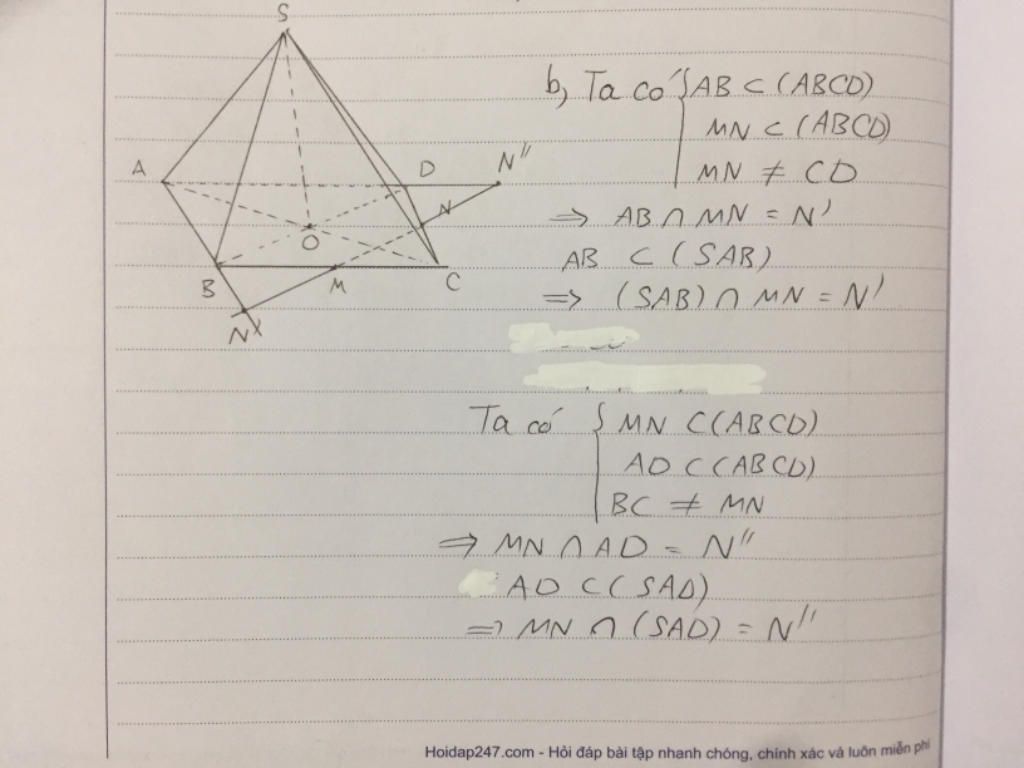 S
A
D
N''
N
O
B
M
C
N'
b, Ta có { AB ⊂ (ABCD)
MN ⊂ (ABCD)
MN ≠ CD
⇒ AB ∩ MN = N'
AB ⊂ (SAB)
⇒ (SAB) ∩ MN = N'
Ta có { MN ⊂ (ABCD)
AD ⊂ (ABCD)
BC ≠ MN
⇒ MN ∩ AD = N''
AD ⊂ (SAD)
⇒ MN ∩ (SAD) = N''
Hoidap247.com - Hỏi đáp bài tập nhanh chóng, chính xác và luôn miễn phí